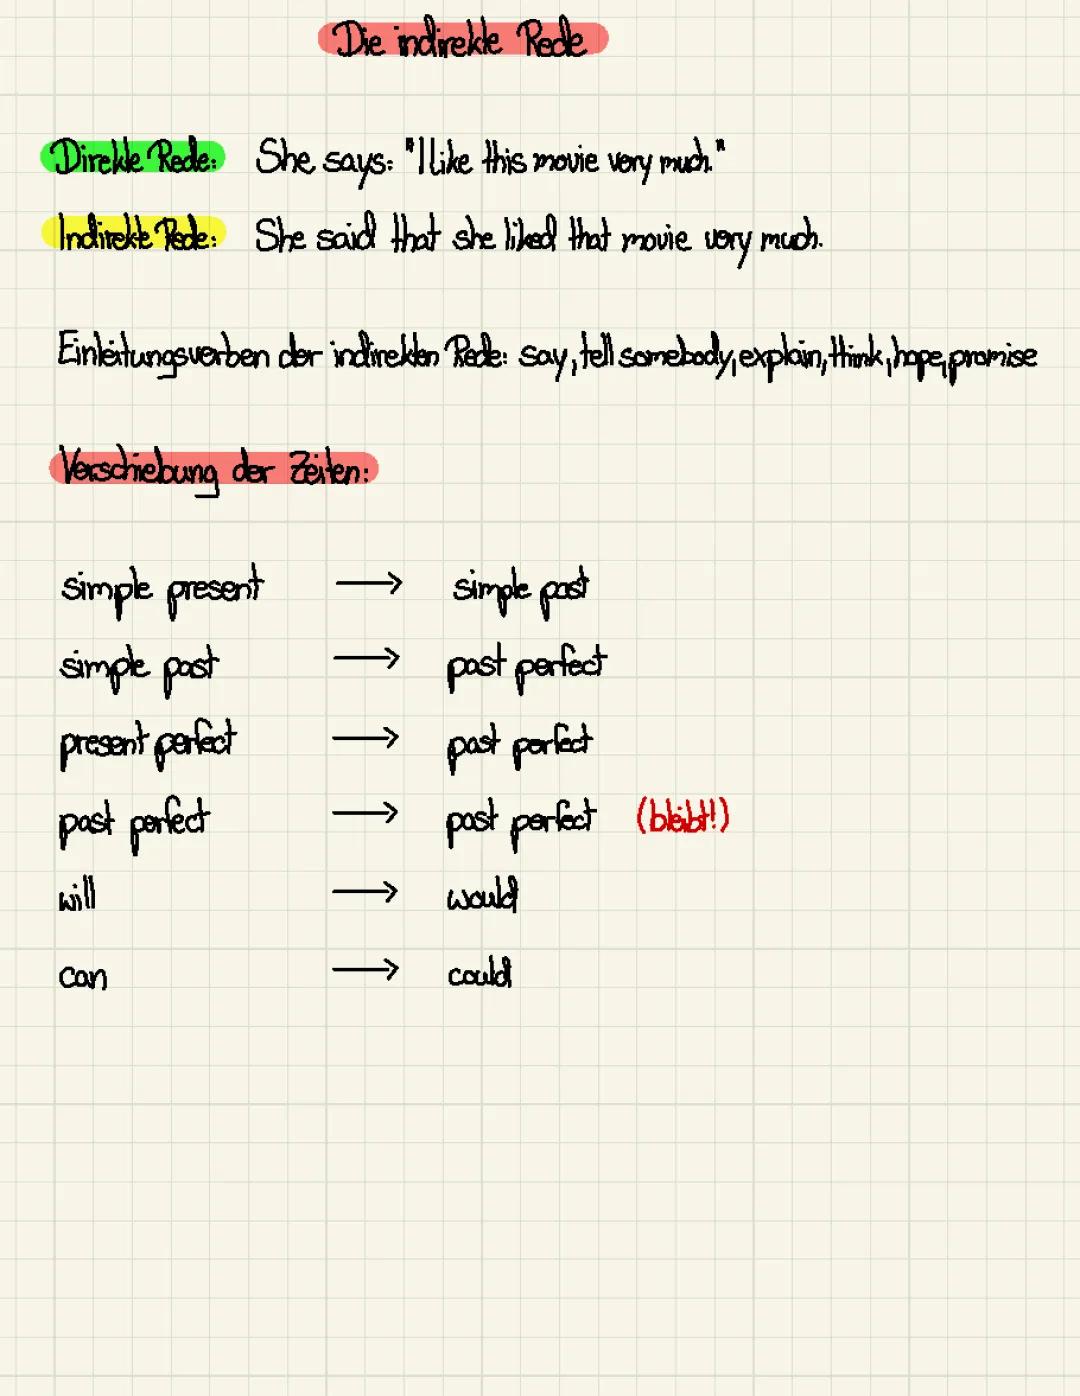 Die indirekte Rede
Direkte Rede: She says: "I like this movie very much."
Indirekte Rede: She said that she liked that movie very much.
Einleitungsverben der indirekten Rede: say, tell somebody, explain, think, hope, promise
Verschiebung der Zeiten:
simple present → simple past
simple past → past perfect
present perfect → past perfect
past perfect → past perfect (bleibt!)
will → would
can → could